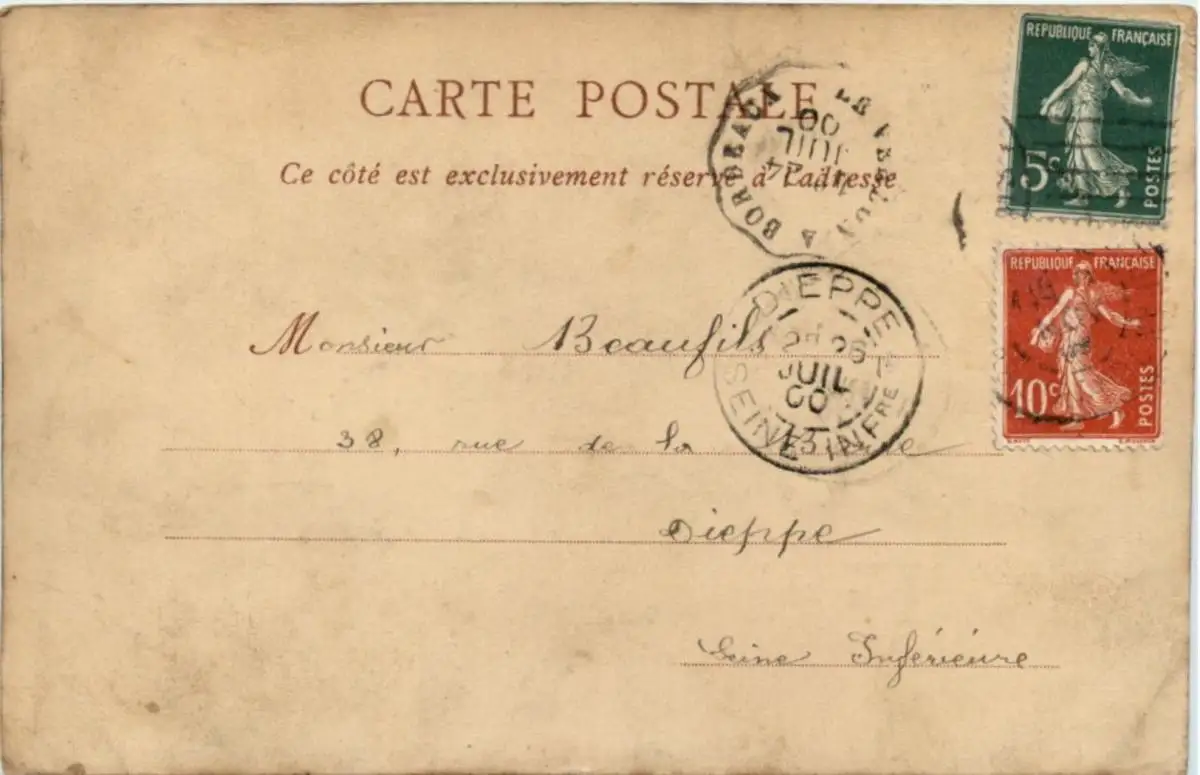 CARTE POSTALE
Ce côté est exclusivement réservé à l'adresse
REPUBLIQUE FRANÇAISE
5c
POSTES
A BORDEAUX
24
JUIL
00
REPUBLIQUE FRANÇAISE
10c
POSTES
DIEPPE
26
JUIL
00
SEINE INFRE
Monsieur Beaufils
38, rue de la
Dieppe
Seine Inférieure